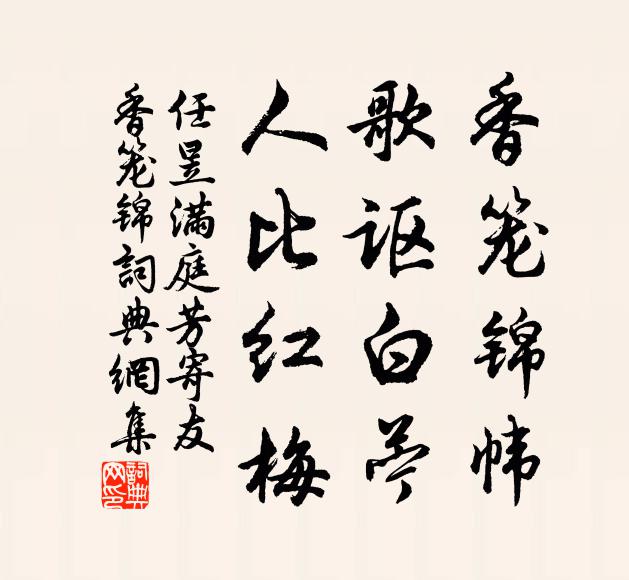 香笼锦帏
歌讴白苎
人比红梅
任昱满庭芳寄友
香笼锦詞典網集
詞典网印